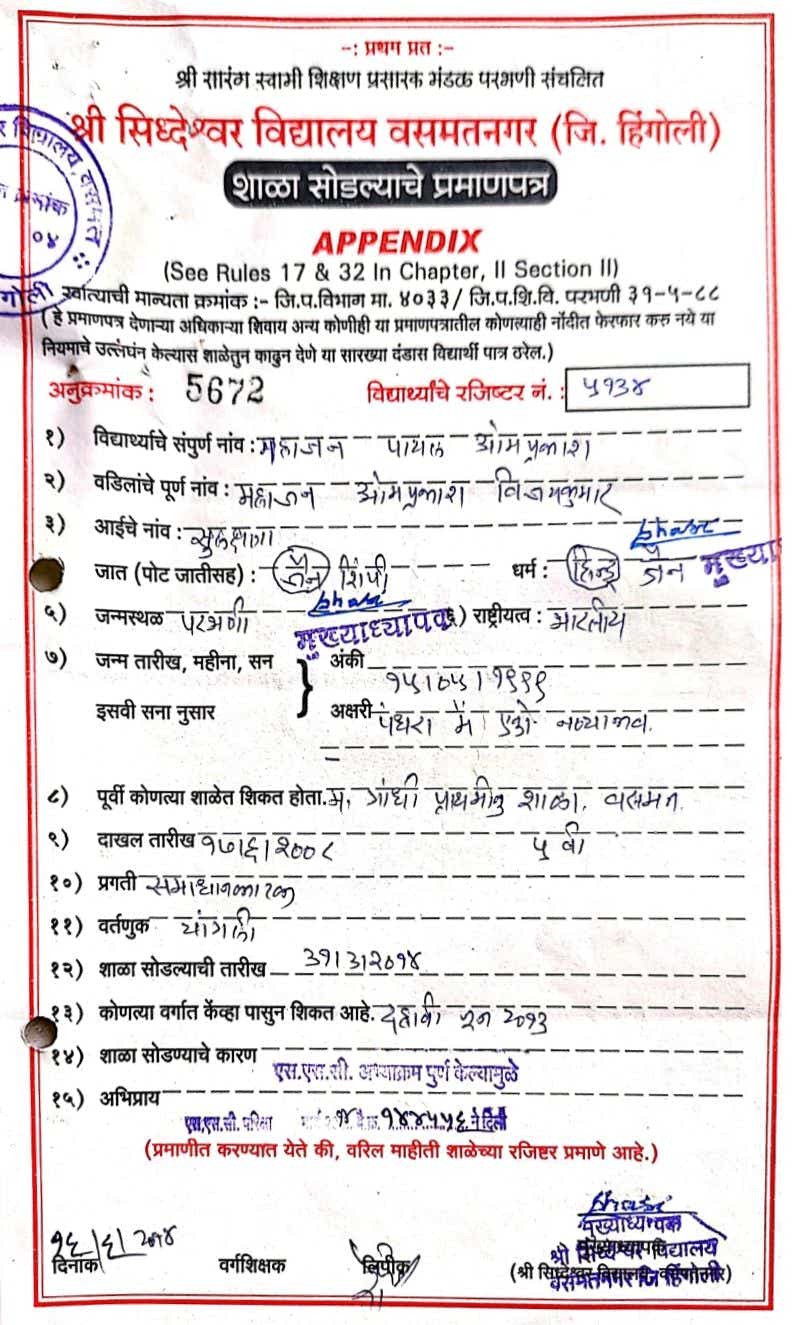 -: प्रथम प्रत :-
श्री सारंग स्वामी शिक्षण प्रसारक मंडळ परभणी संचलित
श्री सिध्देश्वर विद्यालय वसमतनगर (जि. हिंगोली)
शाळा सोडल्याचे प्रमाणपत्र
APPENDIX
(See Rules 17 & 32 In Chapter, II Section II)
खात्याची मान्यता क्रमांक :- जि.प.विभाग मा. ४०३३/ जि.प.शि.वि. परभणी ३१-५-८८
( हे प्रमाणपत्र देणाऱ्या अधिकाऱ्या शिवाय अन्य कोणीही या प्रमाणपत्रातील कोणत्याही नोंदीत फेरफार करु नये या
नियमाचे उल्लंघन केल्यास शाळेतुन काढुन देणे या सारख्या दंडास विद्यार्थी पात्र ठरेल.)
अनुक्रमांक : 5672 विद्यार्थ्यांचे रजिष्टर नं. : ५१३४
१) विद्यार्थ्याचे संपुर्ण नांव : महाजन पायल ओमप्रकाश
२) वडिलांचे पूर्ण नांव : महाजन ओमप्रकाश विजयकुमार
३) आईचे नांव : सुलक्षणा
जात (पोट जातीसह) : जैन शिंपी धर्म : हिन्दू जैन मुख्या
५) जन्मस्थळ परभणी मुख्याध्यापक ६) राष्ट्रीयत्व : भारतीय
७) जन्म तारीख, महीना, सन अंकी १५/०५/१९९९
इसवी सना नुसार अक्षरी पंधरा मे एको नव्यानव.
८) पूर्वी कोणत्या शाळेत शिकत होता. म. गांधी प्राथमीक शाळा. वसमत.
९) दाखल तारीख १७/६/२००९ ५ वी
१०) प्रगती समाधानकारक
११) वर्तणुक चांगली
१२) शाळा सोडल्याची तारीख ३१/३/२०१४
१३) कोणत्या वर्गात केंव्हा पासुन शिकत आहे. दहावी जून २०१३
१४) शाळा सोडण्याचे कारण एस.एस.सी. अभ्याक्रम पुर्ण केल्यामुळे
१५) अभिप्राय
एस.एस.सी. परिक्षा मार्च १४ बै.क्र. १४४५५६ ने दिली
(प्रमाणीत करण्यात येते की, वरिल माहीती शाळेच्या रजिष्टर प्रमाणे आहे.)
१६/६/२०१४
मुख्याध्यापक
श्री सिध्देश्वर विद्यालय
दिनांक वर्गशिक्षक लिपीक (श्री सिध्देश्वर विद्यालय, हिंगोली)
वसमतनगर जि हिंगोली